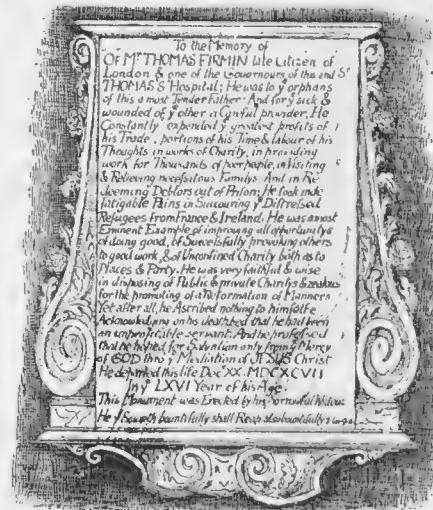 To the Memory of
OF Mr THOMAS FIRMIN late Citizen of
London & one of the Governours of this and St
THOMAS'S Hospital; He was to ye orphans
of this a most Tender Father. And for ye sick &
wounded of ye other a Carefull provider. He
Constantly expended ye greatest profits of
his Trade, portions of his Time & labour of his
Thoughts in works of Charity, in providing
work for Thousands of poor people, in Visiting
& Relieving necessitous Familys. And in Re
deeming Debtors out of Prison; He took inde
fatigable Pains in Succouring ye Distressed
Refugees from France & Ireland. He was a most
Eminent Example of improving all opportunitys
of doing good, of Successfully provoking others
to good work, & of Unconfined Charity both as to
Places & Party. He was very faithful & wise
in disposing of Public & private Charitys & zealous
for the promoting of a Reformation of Manners
Yet after all, he Ascribed nothing to himselfe
Acknowledging on his deathbed that he had been
an unprofitable servant. And he professed
that he hoped for Salvation only from ye Mercy
of GOD thro ye Mediation of JESUS Christ
He departed this life Dec XX. MDCXCVII
In ye LXVI Year of his Age.
This Monument was Erected by his Sorrowful Widow
He yt Soweth bountifully shall Reap also bountifully